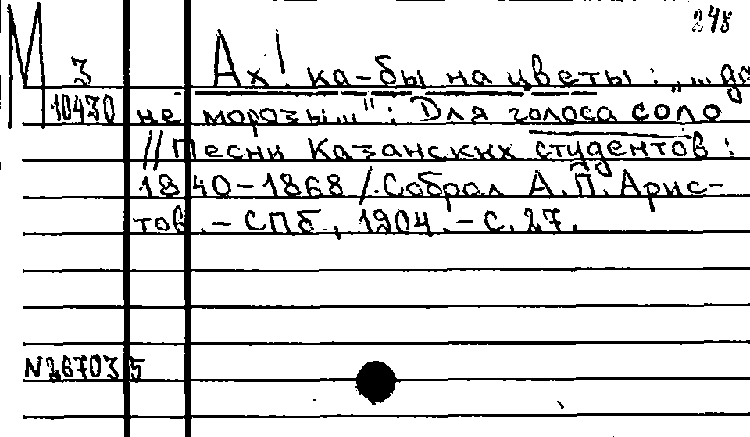 248
М 3 Ах! ка-бы на цветы: "... да
10430 не морозы...": Для голоса соло
// Песни Казанских студентов:
1840-1868 /. Собрал А.П. Арис-
тов. - СПб, 1904. - С. 27.
N 267035